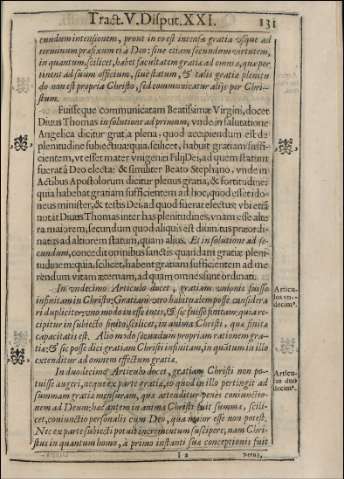 Tract. V. Disput. XXI. 131
cundum intensionem, prout in eo est intensa gratia usque ad
terminum præfixum ei à Deo: siue etiam secundum virtutem,
in quantum, scilicet, habet facultatem gratiæ ad omnia, quæ per
tinent ad suum officium, siue statum, & talis gratiæ plenitu
do non est propria Christo, sed communicatur alijs per Chri-
stum.
Fuisseque communicatam Beatissimæ Virgini, docet
Diuus Thomas in solutione ad primum, vnde in salutatione
Angelica dicitur gratia plena, quod accipiendum est de
plenitudine subiectiua: quia, scilicet, habuit gratiam suffi-
cientem, vt esset mater vnigeniti Filij Dei, ad quem statum
fuerat à Deo electa: & similiter Beato Stephano, vnde in
Actibus Apostolorum dicitur plenus gratia, & fortitudine:
quia habebat gratiam sufficientem ad hoc, quod esset ido-
neus minister, & testis Dei, ad quod fuerat electus: vbi etiã
notat Diuus Thomas inter has plenitudines, vnam esse alte
ra maiorem, secundum quod aliquis est diuinitus præordi-
natus ad altiorem statum, quam alius. Et in solutione ad se-
cundum, concedit omnibus sanctis quandam gratiæ pleni-
tudinem: quia, scilicet, habent gratiam sufficientem ad me
rendum vitam æternam, ad quam omnes sunt ordinati.
In vndecimo Articulo docet, gratiam vnionis fuisse
infinitam in Christo; Gratiam vero habitualem posse considera
ri dupliciter: vno modo in esse entis, & sic fuisse finitam: quia re
cipitur in subiecto finito, scilicet, in anima Christi, quæ finitæ
capacitatis est. Alio modo secundum propriam rationem gra-
tiæ: & sic posse dici gratiam Christi infinitam, in quãtum in illo
extenditur ad omnem effectum gratiæ.
Articu-
lus vn-
decim⁹.
In duodecimo Articulo docet, gratiam Christi non po-
tuisse augeri, atque ex parte gratiæ, eo quod in illo pertingit ad
summam gratiæ mensuram, quæ attenditur penes coniunctio-
nem ad Deum: habet autem in anima Christi fuit summa, scili-
cet, coniunctio personalis cum Deo, qua maior esse non potest.
Nec ex parte subiecti potuit incrementum suscipere, nam Chri-
stus in quantum homo, à primo instanti suæ conceptionis fuit
Articu-
lus duo
decim⁹.
I 2
verus,